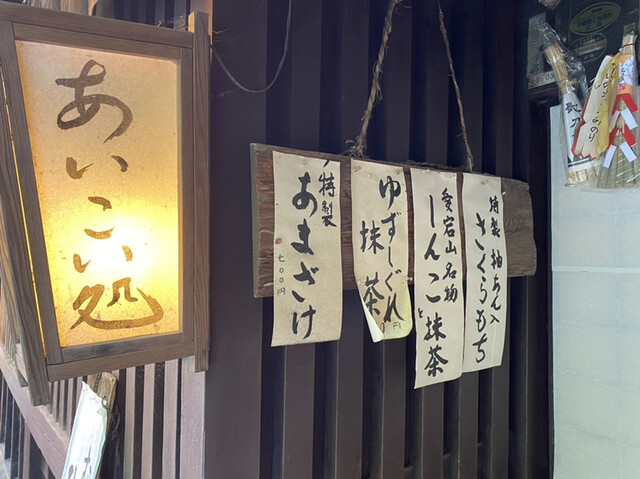 あいこい処
特製
あまざけ
七00円
ゆずしぐれ
抹茶
円
愛宕山名物
しんこと抹茶
特製 柚あん入
さくらもち